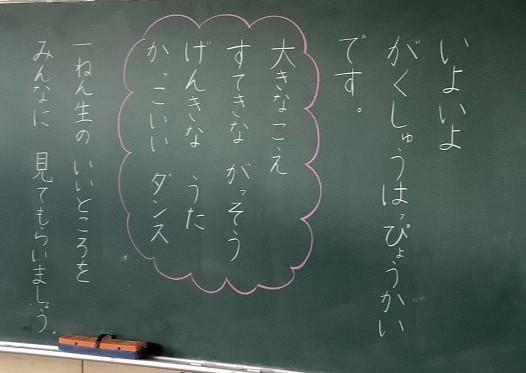 いよいよ
がくしゅうはっぴょうかい
です。
大きなこえ
すてきな がっそう
げんきな うた
かっこいい ダンス
一ねん生の いいところを
みんなに 見てもらいましょう。